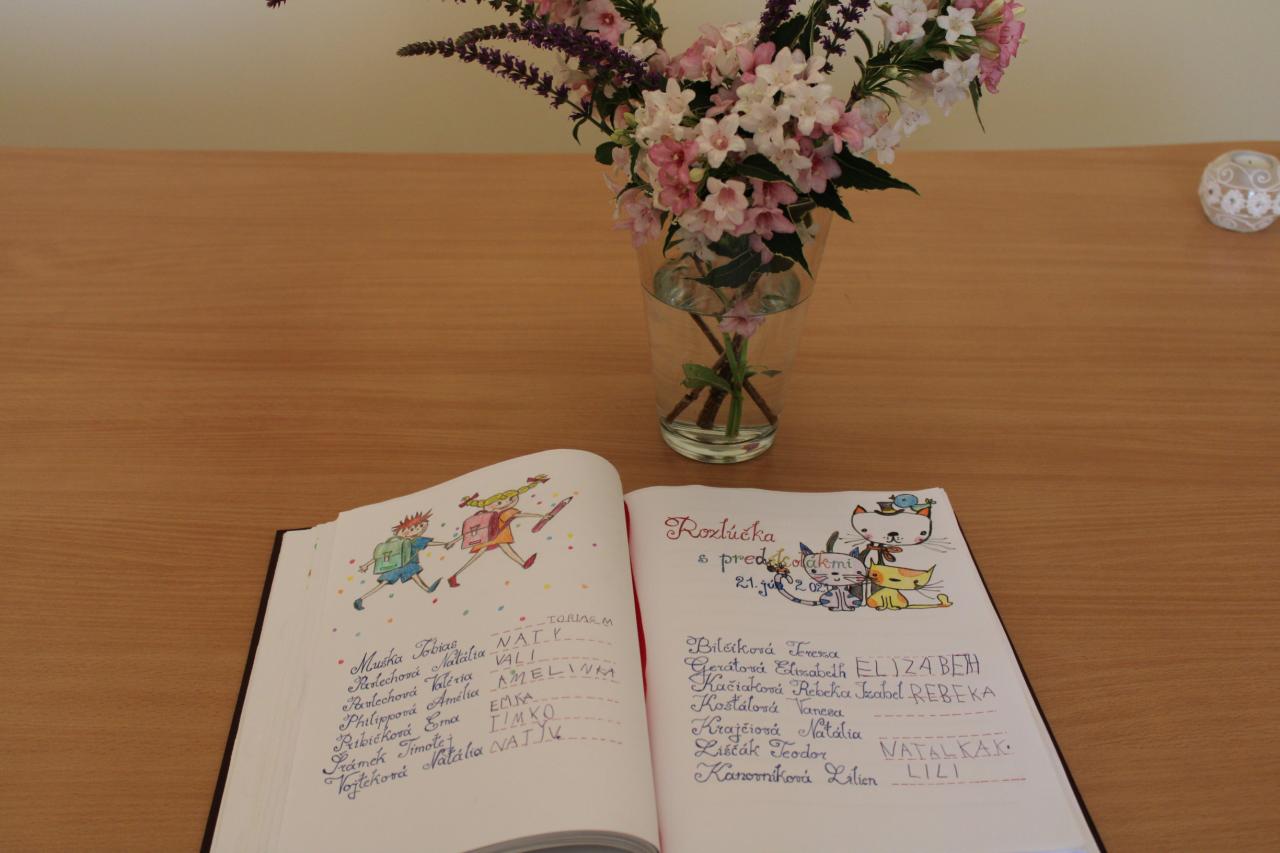 Muška Tobias TOBIAS M
Pavlechová Natália NATY
Pavlechová Valéria VALI
Philippová Amélia AMELINKA
Ribičková Ema EMKA
Šrámek Timotej TIMKO
Vojteková Natália NATJV
Rozlúčka
s predškolákmi
21. jún 2021
Bilčíková Tereza
Gerátová Elizabeth ELIZABETH
Kačiaková Rebeka Izabel REBEKA
Košťálová Vanesa
Krajčiová Natália
Liščák Teodor NATALKA.K.
Kanovníková Lilien LILI